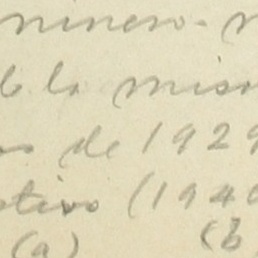 minero-
la mis
de 1929
tivo (194
(a) (b